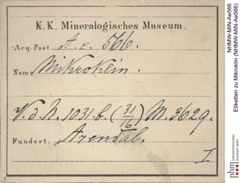 K. K. Mineralogisches Museum.
Acq. Post A. e. 566.
Name Mikroklin.
V. d. N. 1031. b. (31/16) M. 3629.
Fundort. Arendal.
I
NHMW-MIN-Ae566
Etiketten zu Mikroklin (NHMW-MIN-Ae566)
nhm